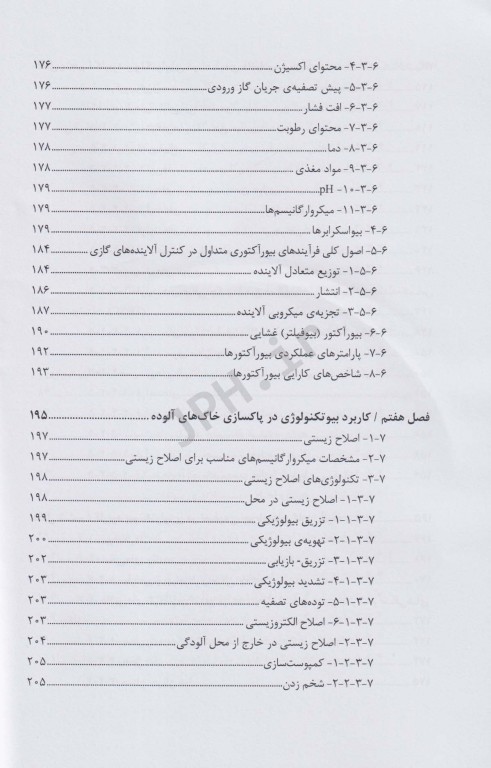 ۶-۳-۴- محتوای اکسیژن ۱۷۶
۶-۳-۵- پیش تصفیه‌ی جریان گاز ورودی ۱۷۶
۶-۳-۶- افت فشار ۱۷۷
۶-۳-۷- محتوای رطوبت ۱۷۷
۶-۳-۸- دما ۱۷۸
۶-۳-۹- مواد مغذی ۱۷۸
۶-۳-۱۰- pH ۱۷۹
۶-۳-۱۱- میکروارگانیسم‌ها ۱۷۹
۶-۴- بیواسکرابرها ۱۷۹
۶-۵- اصول کلی فرآیندهای بیورآکتوری متداول در کنترل آلاینده‌های گازی ۱۸۴
۶-۵-۱- توزیع متعادل آلاینده ۱۸۴
۶-۵-۲- انتشار ۱۸۶
۶-۵-۳- تجزیه‌ی میکروبی آلاینده ۱۸۷
۶-۶- بیورآکتور (بیوفیلتر) غشایی ۱۹۰
۶-۷- پارامترهای عملکردی بیورآکتورها ۱۹۲
۶-۸- شاخص‌های کارایی بیورآکتورها ۱۹۳
JPH.ir
فصل هفتم / کاربرد بیوتکنولوژی در پاکسازی خاک‌های آلوده ۱۹۵
۷-۱- اصلاح زیستی ۱۹۷
۷-۲- مشخصات میکروارگانیسم‌های مناسب برای اصلاح زیستی ۱۹۷
۷-۳- تکنولوژی‌های اصلاح زیستی ۱۹۸
۷-۳-۱- اصلاح زیستی در محل ۱۹۸
۷-۳-۱-۱- تزریق بیولوژیکی ۱۹۹
۷-۳-۱-۲- تهویه‌ی بیولوژیکی ۲۰۰
۷-۳-۱-۳- تزریق- بازیابی ۲۰۲
۷-۳-۱-۴- تشدید بیولوژیکی ۲۰۳
۷-۳-۱-۵- توده‌های تصفیه ۲۰۳
۷-۳-۱-۶- اصلاح الکتروزیستی ۲۰۳
۷-۳-۲- اصلاح زیستی در خارج از محل آلودگی ۲۰۴
۷-۳-۲-۱- کمپوست‌سازی ۲۰۵
۷-۳-۲-۲- شخم زدن ۲۰۵